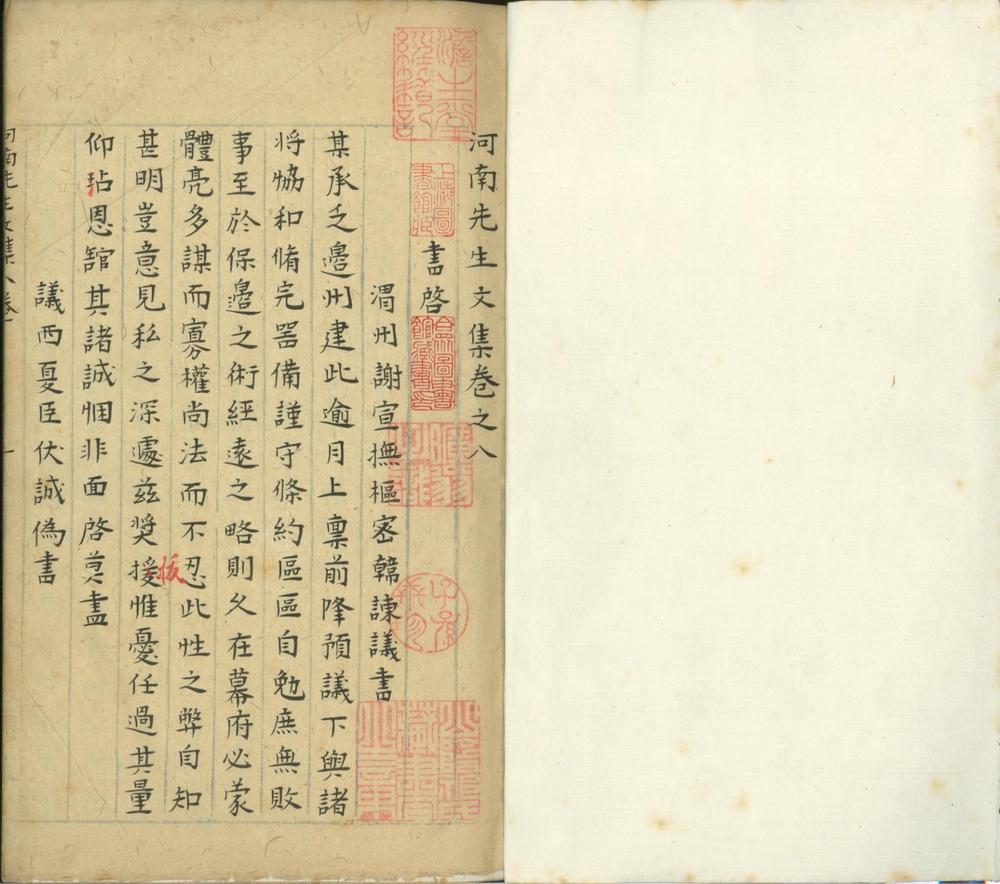 河南先生文集卷之八
書啓
渭州謝宣撫樞密韓諫議書
某承乏邊州建此逾月上稟前降預議下與諸
将恊和脩完器備謹守條約區區自勉庶無敗
事至於保邊之術經遠之略則久在幕府必蒙
體亮多謀而寡權尚法而不忍此性之弊自知
甚明豈意見私之深遽茲奬援惟憂任過其量
扳
仰玷恩舘其諸誠悃非面啓莫盡
議西夏臣伏誠偽書
河南先生文集八卷
一
上海圖書館藏
合眾圖書館藏書印